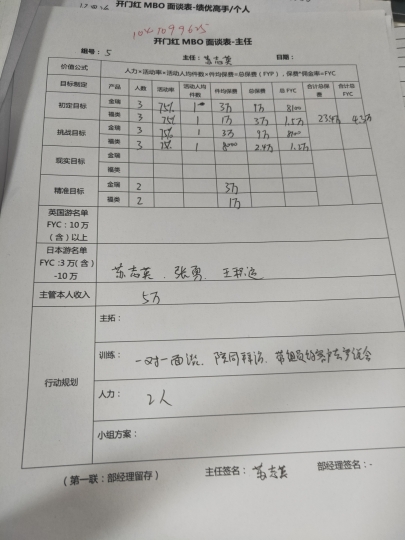 开门红 MBO 面谈表-绩优高手/个人
开门红 MBO 面谈表-主任
组号：5 主任：苏志英 日期：
价值公式 人力×活动率×活动人均件数×件均保费=总保费（FYP），保费*佣金率=FYC
目标制定 产品 人数 活动率 活动人均件数 件均保费 总保费 总 FYC 合计总保费 合计总 FYC
初定目标 金瑞 3 75% 1 3万 9万 8100
福类 3 75% 1 1万 3万 1.5万 23.4万 4.3万
挑战目标 金瑞 3 75% 1 3万 9万
福类 3 75% 1 8000 2.4万 1.2万
现实目标 金瑞
福类
精准目标 金瑞 2 3万
福类 2 1万
英国游名单
FYC：10万
（含）以上
日本游名单
FYC：3万（含）
-10万
苏志英、张勇、
主管本人收入 5万
行动规划
主拓：
训练：一对一面谈、陪同拜访、带组员约客户去
人力：2人
小组方案：
（第一联：部经理留存） 主任签名：苏志英 部经理签名：